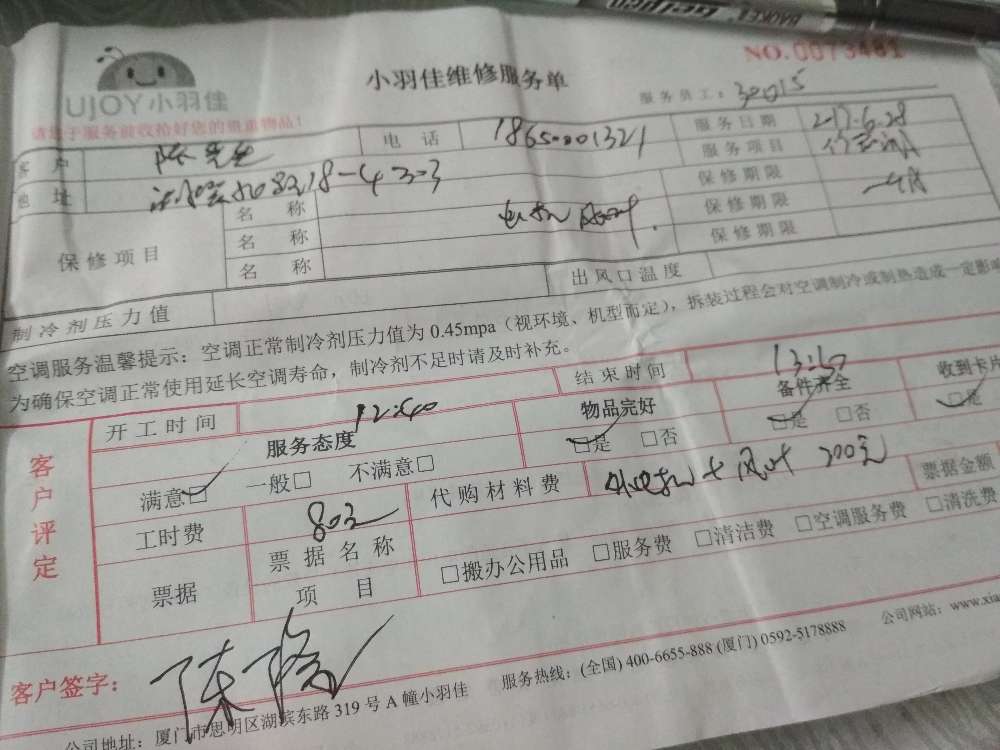 NO.0073481
UJOY小羽佳
小羽佳维修服务单
服务员工：32015
请您于服务前收拾好您的贵重物品！
客 户 陈先生 电 话 18650001321 服务日期 2017.6.28
服务项目
地 址 保修期限
保修项目 名 称 保修期限
名 称 保修期限
名 称
制冷剂压力值 出风口温度
空调服务温馨提示：空调正常制冷剂压力值为 0.45mpa（视环境、机型而定），拆装过程会对空调制冷或制热造成一定影响
为确保空调正常使用延长空调寿命，制冷剂不足时请及时补充。
客户评定
开工时间 12:40 结束时间 13:50
服务态度 物品完好 备件齐全 收到卡片
满意□ 一般□ 不满意□ □是 □否 □是 □否 □是
工时费 80元 代购材料费 200元 票据金额
票据 票据名称 □搬办公用品 □服务费 □清洁费 □空调服务费 □清洗费
项 目
客户签字：
公司地址：厦门市思明区湖滨东路 319 号 A 幢小羽佳 服务热线：(全国) 400-6655-888 (厦门) 0592-5178888 公司网站：www.xia